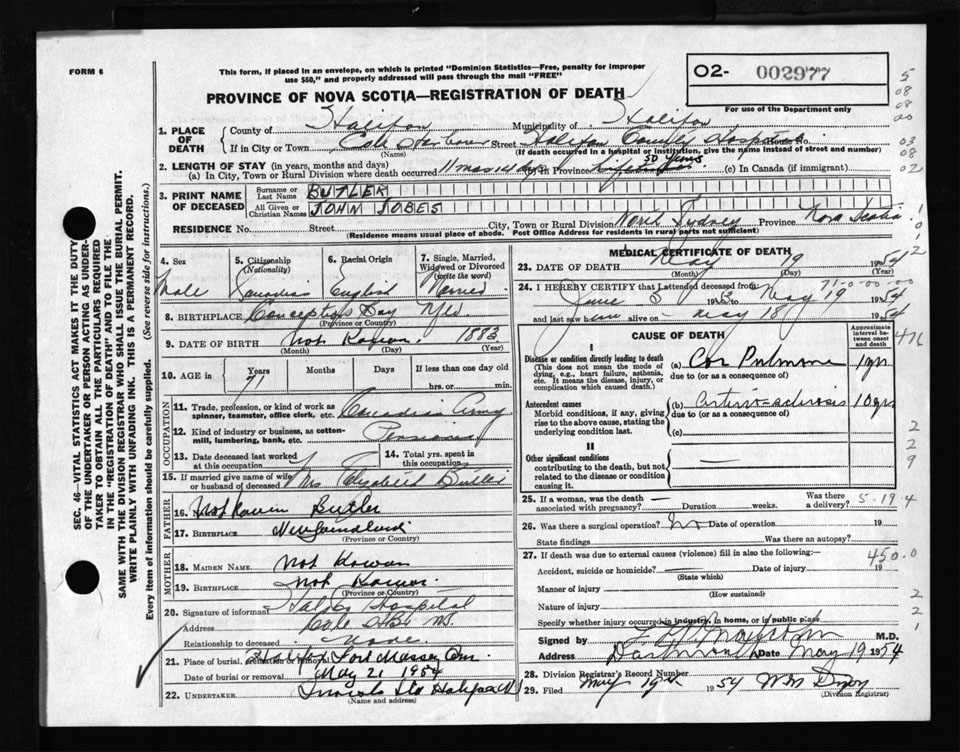 FORM 6
This form, if placed in an envelope, on which is printed "Dominion Statistics—Free, penalty for improper
use $50," and properly addressed will pass through the mail "FREE"
O2- 002977
For use of the Department only
PROVINCE OF NOVA SCOTIA—REGISTRATION OF DEATH
1. PLACE OF DEATH
County of Halifax Municipality of Halifax
If in City or Town Cole Harbour Street Halifax County Hospital House No.
(Name) (If death occurred in a hospital or institution, give the name instead of street and number)
2. LENGTH OF STAY (in years, months and days)
(a) In City, Town or Rural Division where death occurred 11 mos 14 day (b) In Province 50 years (c) In Canada (if immigrant)
3. PRINT NAME OF DECEASED
Surname or Last Name BUTLER
All Given or Christian Names JOHN JOBES
RESIDENCE No. Street City, Town or Rural Division North Sydney Province Nova Scotia
(Residence means usual place of abode. Post Office Address for residents in rural parts not sufficient)
4. Sex Male
5. Citizenship (Nationality) Canadian
6. Racial Origin English
7. Single, Married, Widowed or Divorced (write the word) Married
8. BIRTHPLACE Conception Bay Nfld.
(Province or Country)
9. DATE OF BIRTH Not Known. 1883
(Month) (Day) (Year)
10. AGE in Years 71 Months Days If less than one day old
hrs. or min.
OCCUPATION
11. Trade, profession, or kind of work as spinner, teamster, office clerk, etc. Canadian Army
12. Kind of industry or business, as cotton-mill, lumbering, bank, etc. Pension
13. Date deceased last worked at this occupation
14. Total yrs. spent in this occupation
15. If married give name of wife or husband of deceased Mrs Elizabeth Butler
FATHER
16. Not Known Butler
17. BIRTHPLACE Newfoundland
(Province or Country)
MOTHER
18. MAIDEN NAME Not Known
19. BIRTHPLACE Not Known.
(Province or Country)
20. Signature of informant Hospital
Address Cole Hbr NS.
Relationship to deceased None.
21. Place of burial, cremation or removal Halifax Fort Massey Cem.
Date of burial or removal May 21 1954
22. UNDERTAKER Halifax
(Name and address)
MEDICAL CERTIFICATE OF DEATH
23. DATE OF DEATH May 19 1954
(Month) (Day) (Year)
24. I HEREBY CERTIFY that I attended deceased from
71-0-00-00
June 5 1953 May 19 1954
and last saw him alive on May 18 1954
CAUSE OF DEATH
Approximate interval between onset and death
I
Disease or condition directly leading to death
(This does not mean the mode of dying, e.g., heart failure, asthenia, etc. It means the disease, injury, or complication which caused death.)
(a) Cor Pulmone 1 yr
due to (or as a consequence of)
Antecedent causes
Morbid conditions, if any, giving rise to the above cause, stating the underlying condition last.
(b) Arterio-sclerosis 10 yrs
due to (or as a consequence of)
(c)
II
Other significant conditions
contributing to the death, but not related to the disease or condition causing it.
25. If a woman, was the death associated with pregnancy? — Duration weeks. Was there a delivery?
5-19-4
26. Was there a surgical operation? No Date of operation 19
State findings Was there an autopsy?
27. If death was due to external causes (violence) fill in also the following:—
450.0
Accident, suicide or homicide? Date of injury 19
(State which)
Manner of injury
(How sustained)
Nature of injury
Specify whether injury occurred in industry, in home, or in public place
Signed by M.D.
Address Dartmouth Date May 19 1954
28. Division Registrar's Record Number
29. Filed May 19th 1954 Wm Dixon
(Division Registrar)
SEC. 46—VITAL STATISTICS ACT MAKES IT THE DUTY
OF THE UNDERTAKER OR PERSON ACTING AS UNDER-
TAKER TO OBTAIN ALL THE PARTICULARS REQUIRED
IN THE "REGISTRATION OF DEATH" AND TO FILE THE
SAME WITH THE DIVISION REGISTRAR WHO SHALL ISSUE THE BURIAL PERMIT.
WRITE PLAINLY WITH UNFADING INK. THIS IS A PERMANENT RECORD.
Every item of information should be carefully supplied. (See reverse side for instructions.)
5
08
08
00
03
08
02
1
0
1
2
476
2
2
9
2
2
1